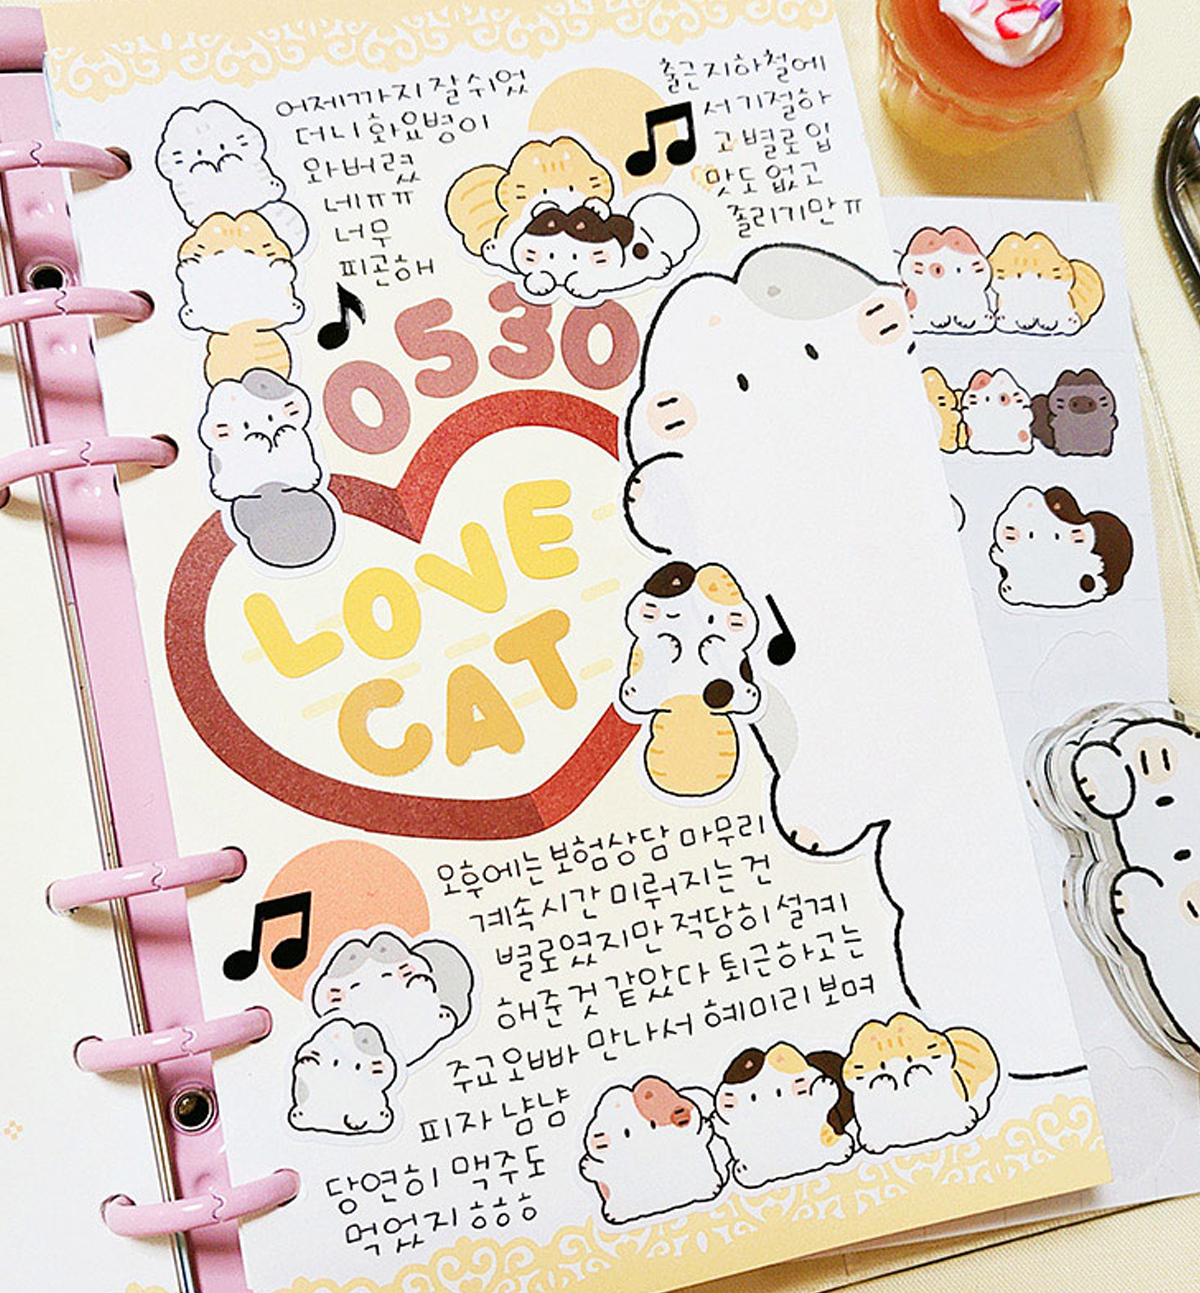 어제까지 잘 쉬었
더니 화요병이
와버렸
네ㅠㅠ
너무
피곤해
출근 지하철에
서 기절하
고 별로 입
맛도 없고
졸리기만 ㅠ
0530
LOVE
CAT
오후에는 보험상담 마무리
계속 시간 미뤄지는 건
별로였지만 적당히 설계
해준 것 같았다 퇴근하고는
주교오빠 만나서 혜미리 보며
피자 냠냠
당연히 맥주도
먹었지 ㅎㅎㅎ